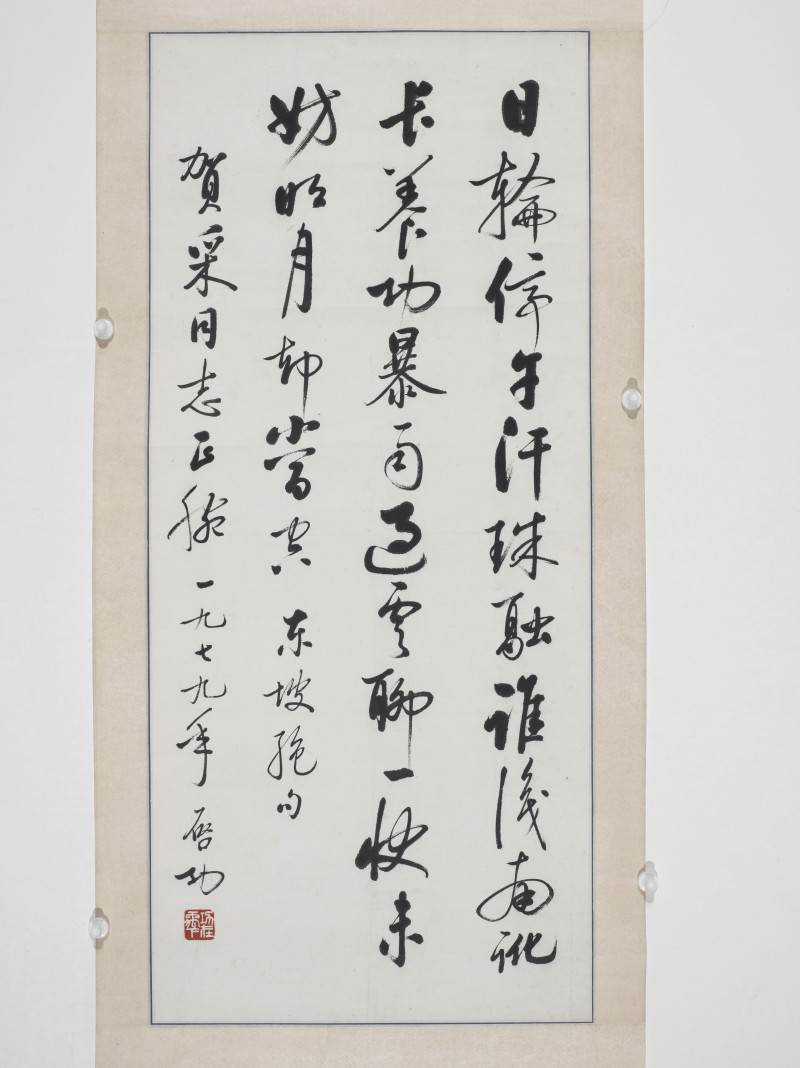 日輪停午汗珠融誰識南訛
长養功暴雨過雲聊一快未
妨明月却當空 东坡絶句
賀采同志正腕 一九七九年 啓功